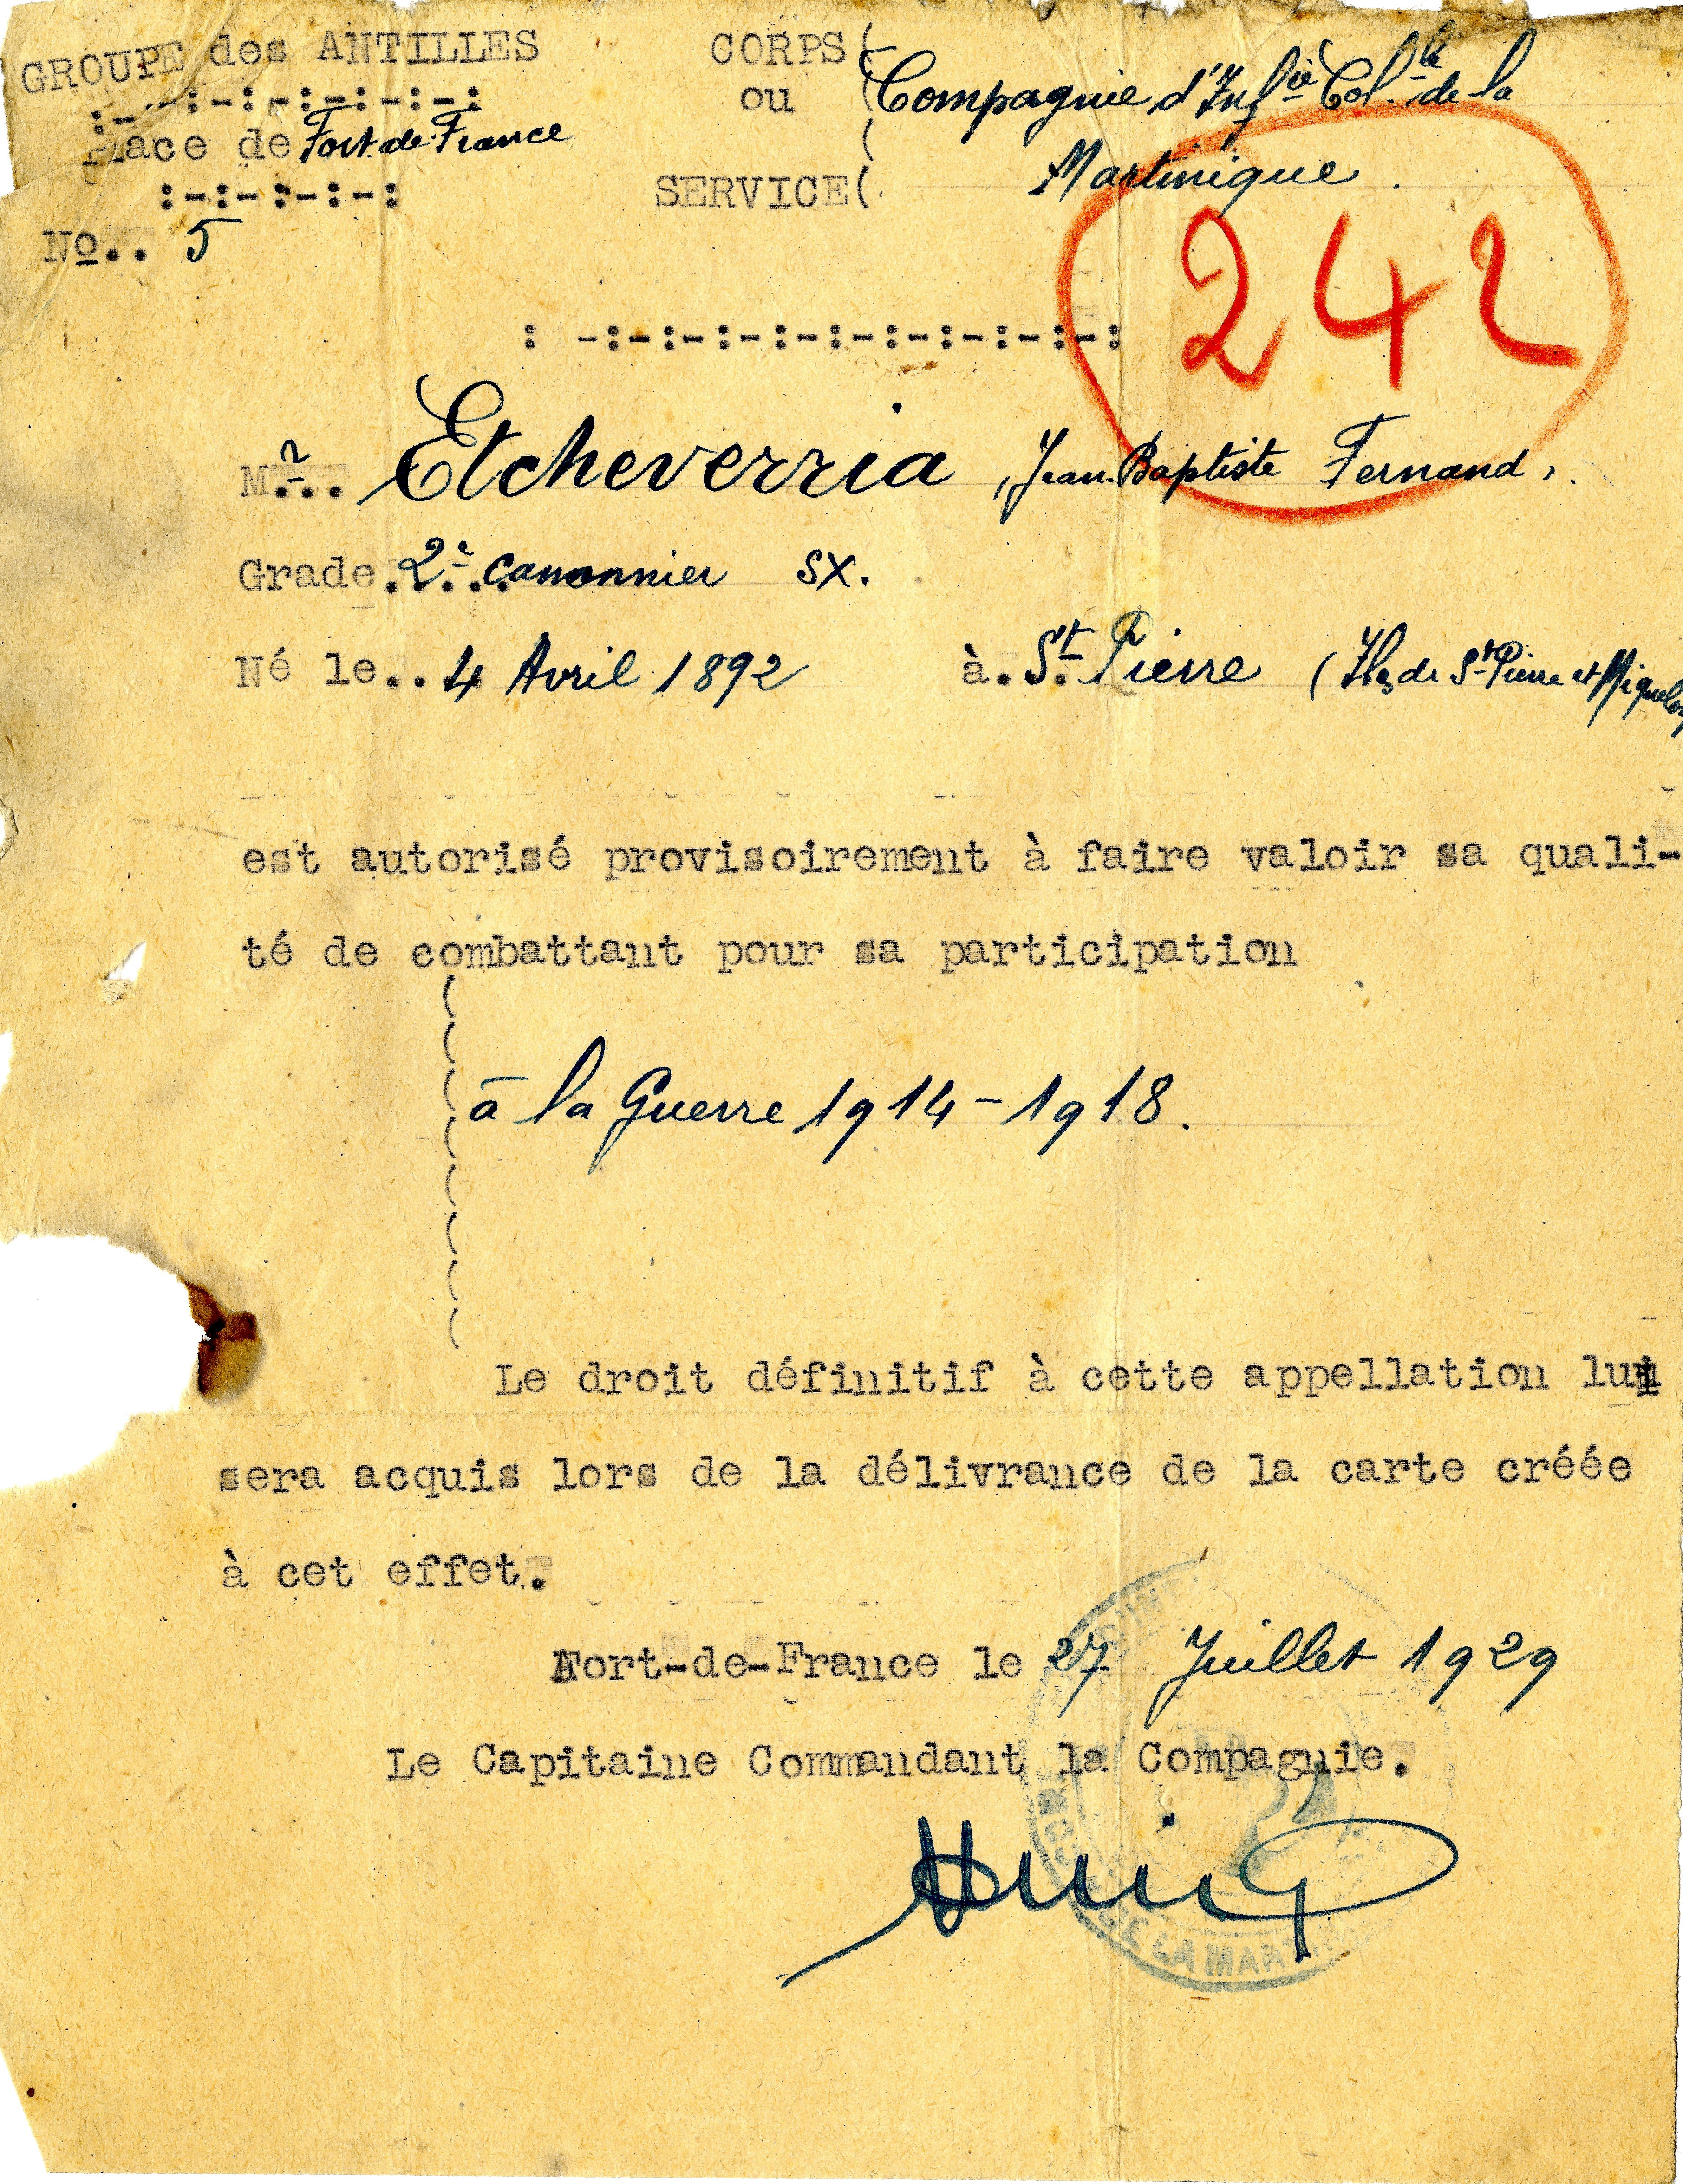 GROUPE des ANTILLES
:-:-:-:-:-:-:
Place de Fort-de-France
:-:-:-:-:
No.. 5
CORPS (
ou ( Compagnie d'Infie Col.le de la
( Martinique.
SERVICE (
242
: -:-:-:-:-:-:-:-:-:-:
Mr... Etcheverria, Jean-Baptiste Fernand,
Grade. 2e canonnier sx.
Né le.. 4 Avril 1892 à. St. Pierre (Iles de St Pierre et Miquelon
est autorisé provisoirement à faire valoir sa quali-
té de combattant pour sa participation
à la Guerre 1914-1918.
Le droit définitif à cette appellation lui
sera acquis lors de la délivrance de la carte créée
à cet effet.
Fort-de-France le 27 Juillet 1929
Le Capitaine Commandant la Compagnie.
DE LA MAR